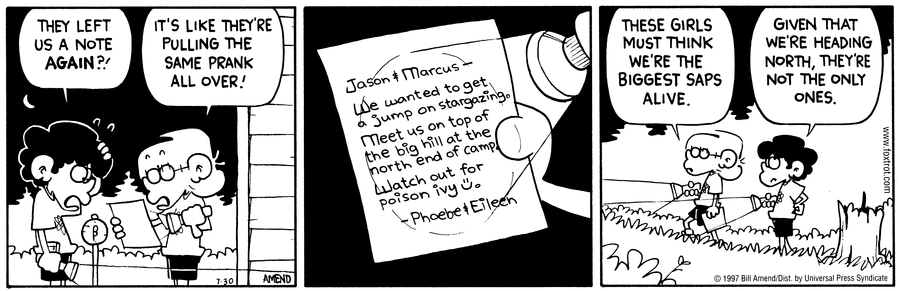 THEY LEFT
US A NOTE
AGAIN?!
IT'S LIKE THEY'RE
PULLING THE
SAME PRANK
ALL OVER!
β
7·30
AMEND
Jason & Marcus —
We wanted to get
a jump on stargazing.
Meet us on top of
the big hill at the
north end of camp.
Watch out for
poison ivy ☺.
— Phoebe & Eileen
THESE GIRLS
MUST THINK
WE'RE THE
BIGGEST SAPS
ALIVE.
GIVEN THAT
WE'RE HEADING
NORTH, THEY'RE
NOT THE ONLY
ONES.
www.foxtrot.com
© 1997 Bill Amend/Dist. by Universal Press Syndicate